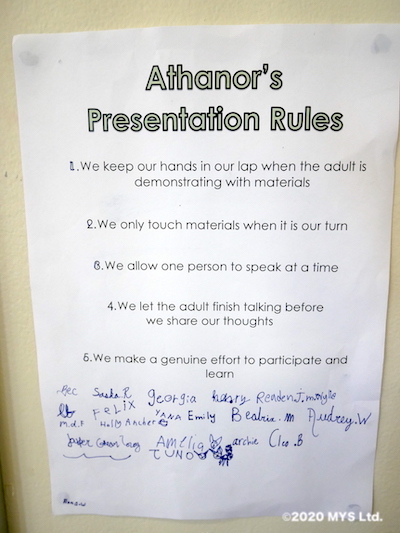 Athanor's
Presentation Rules
1.We keep our hands in our lap when the adult is
demonstrating with materials
2.We only touch materials when it is our turn
3.We allow one person to speak at a time
4.We let the adult finish talking before
we share our thoughts
5.We make a genuine effort to participate and
learn
Bec Sasha R georgia henry
FeLiX YANA Emily Beatrix.M Audrey.W
m.d.F Holly
Amelia archie Cleo.B
©2020 MYS Ltd.